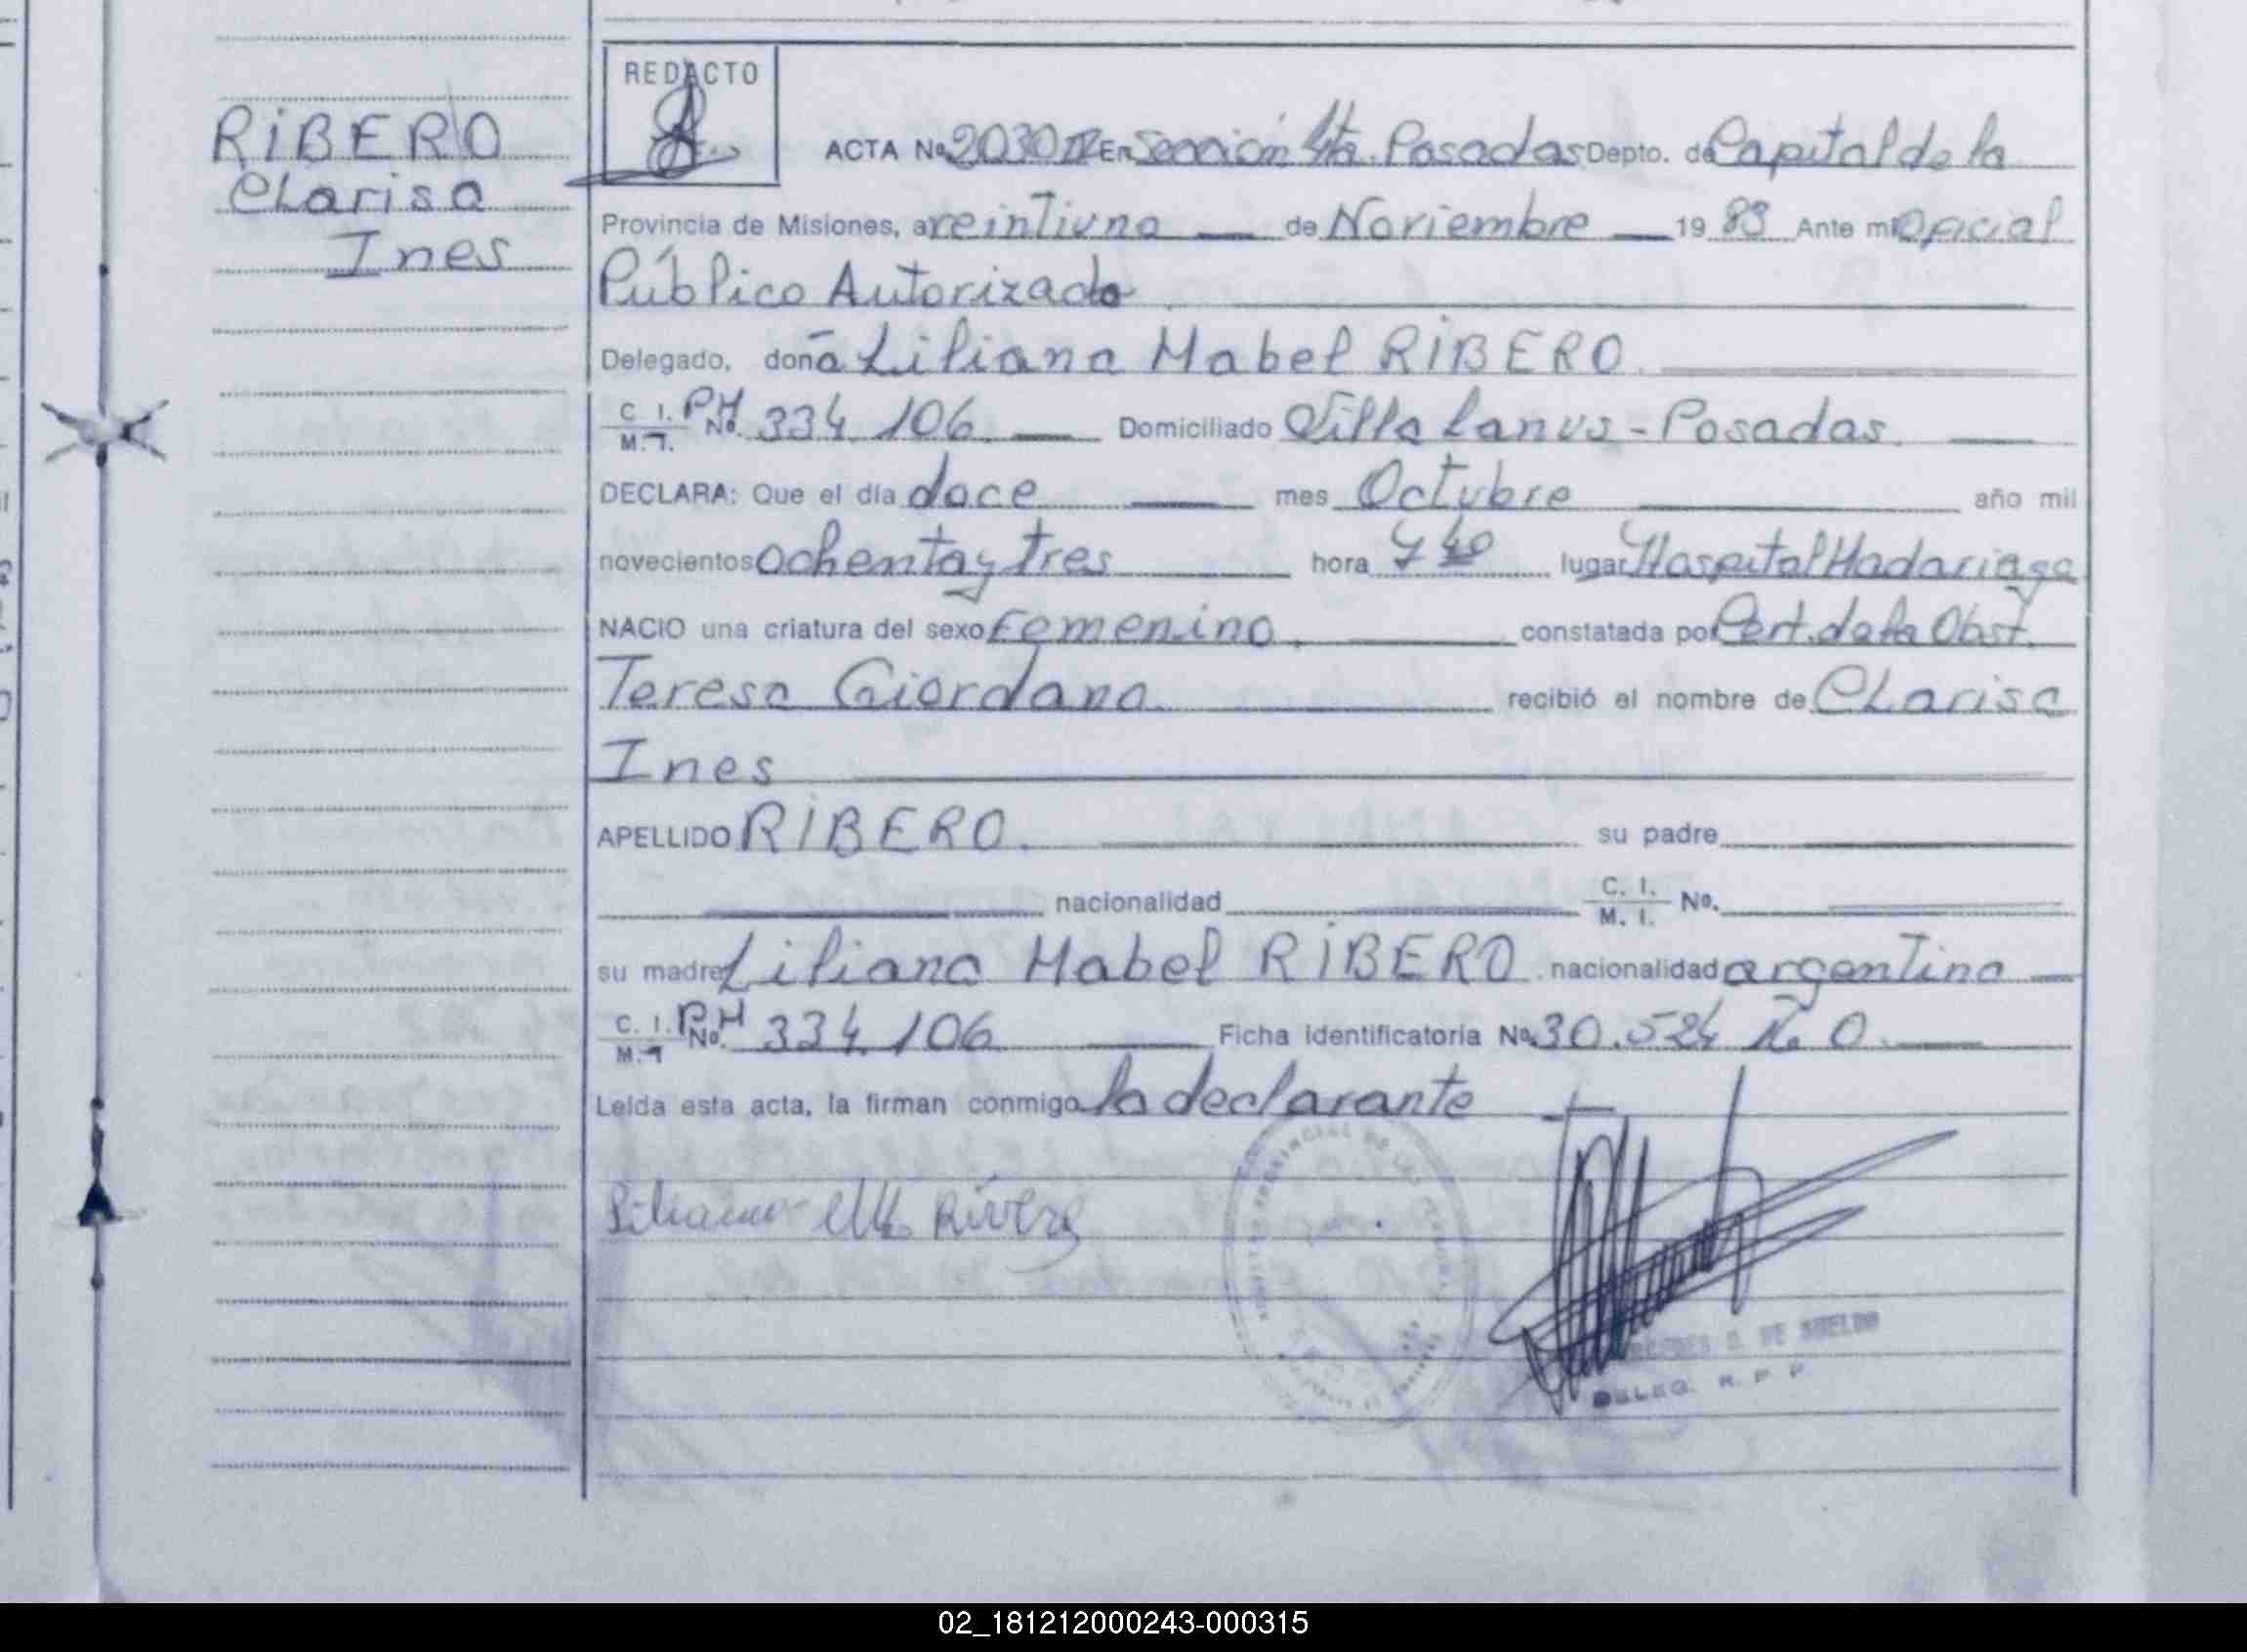 RIBERO
CLarisa
Ines
REDACTO
ACTA No. 2030 En Sección 4ta. Posadas Depto. de Capital de la
Provincia de Misiones, a veintiuno de Noviembre 19 83 Ante mi Oficial
Público Autorizado
Delegado, doña Liliana Mabel RIBERO.
C. I. M. I. PM No. 334.106. Domiciliado Villa Lanus - Posadas.
DECLARA: Que el día doce mes Octubre año mil
novecientos ochenta y tres hora 7 40 lugar Hospital Madariaga
NACIO una criatura del sexo Femenino, constatada por Cert. de la Obst.
Teresa Giordano. recibió el nombre de CLarisa
Ines
APELLIDO RIBERO. su padre
nacionalidad C. I. M. I. No.
su madre Liliana Mabel RIBERO. nacionalidad argentina
C. I. M. I. PM No. 334.106 Ficha identificatoria No. 30.524 O.
Leída esta acta, la firman conmigo la declarante
Liliana Rivero
DE SUELDO
DELEG. R. P. P.
02_181212000243-000315